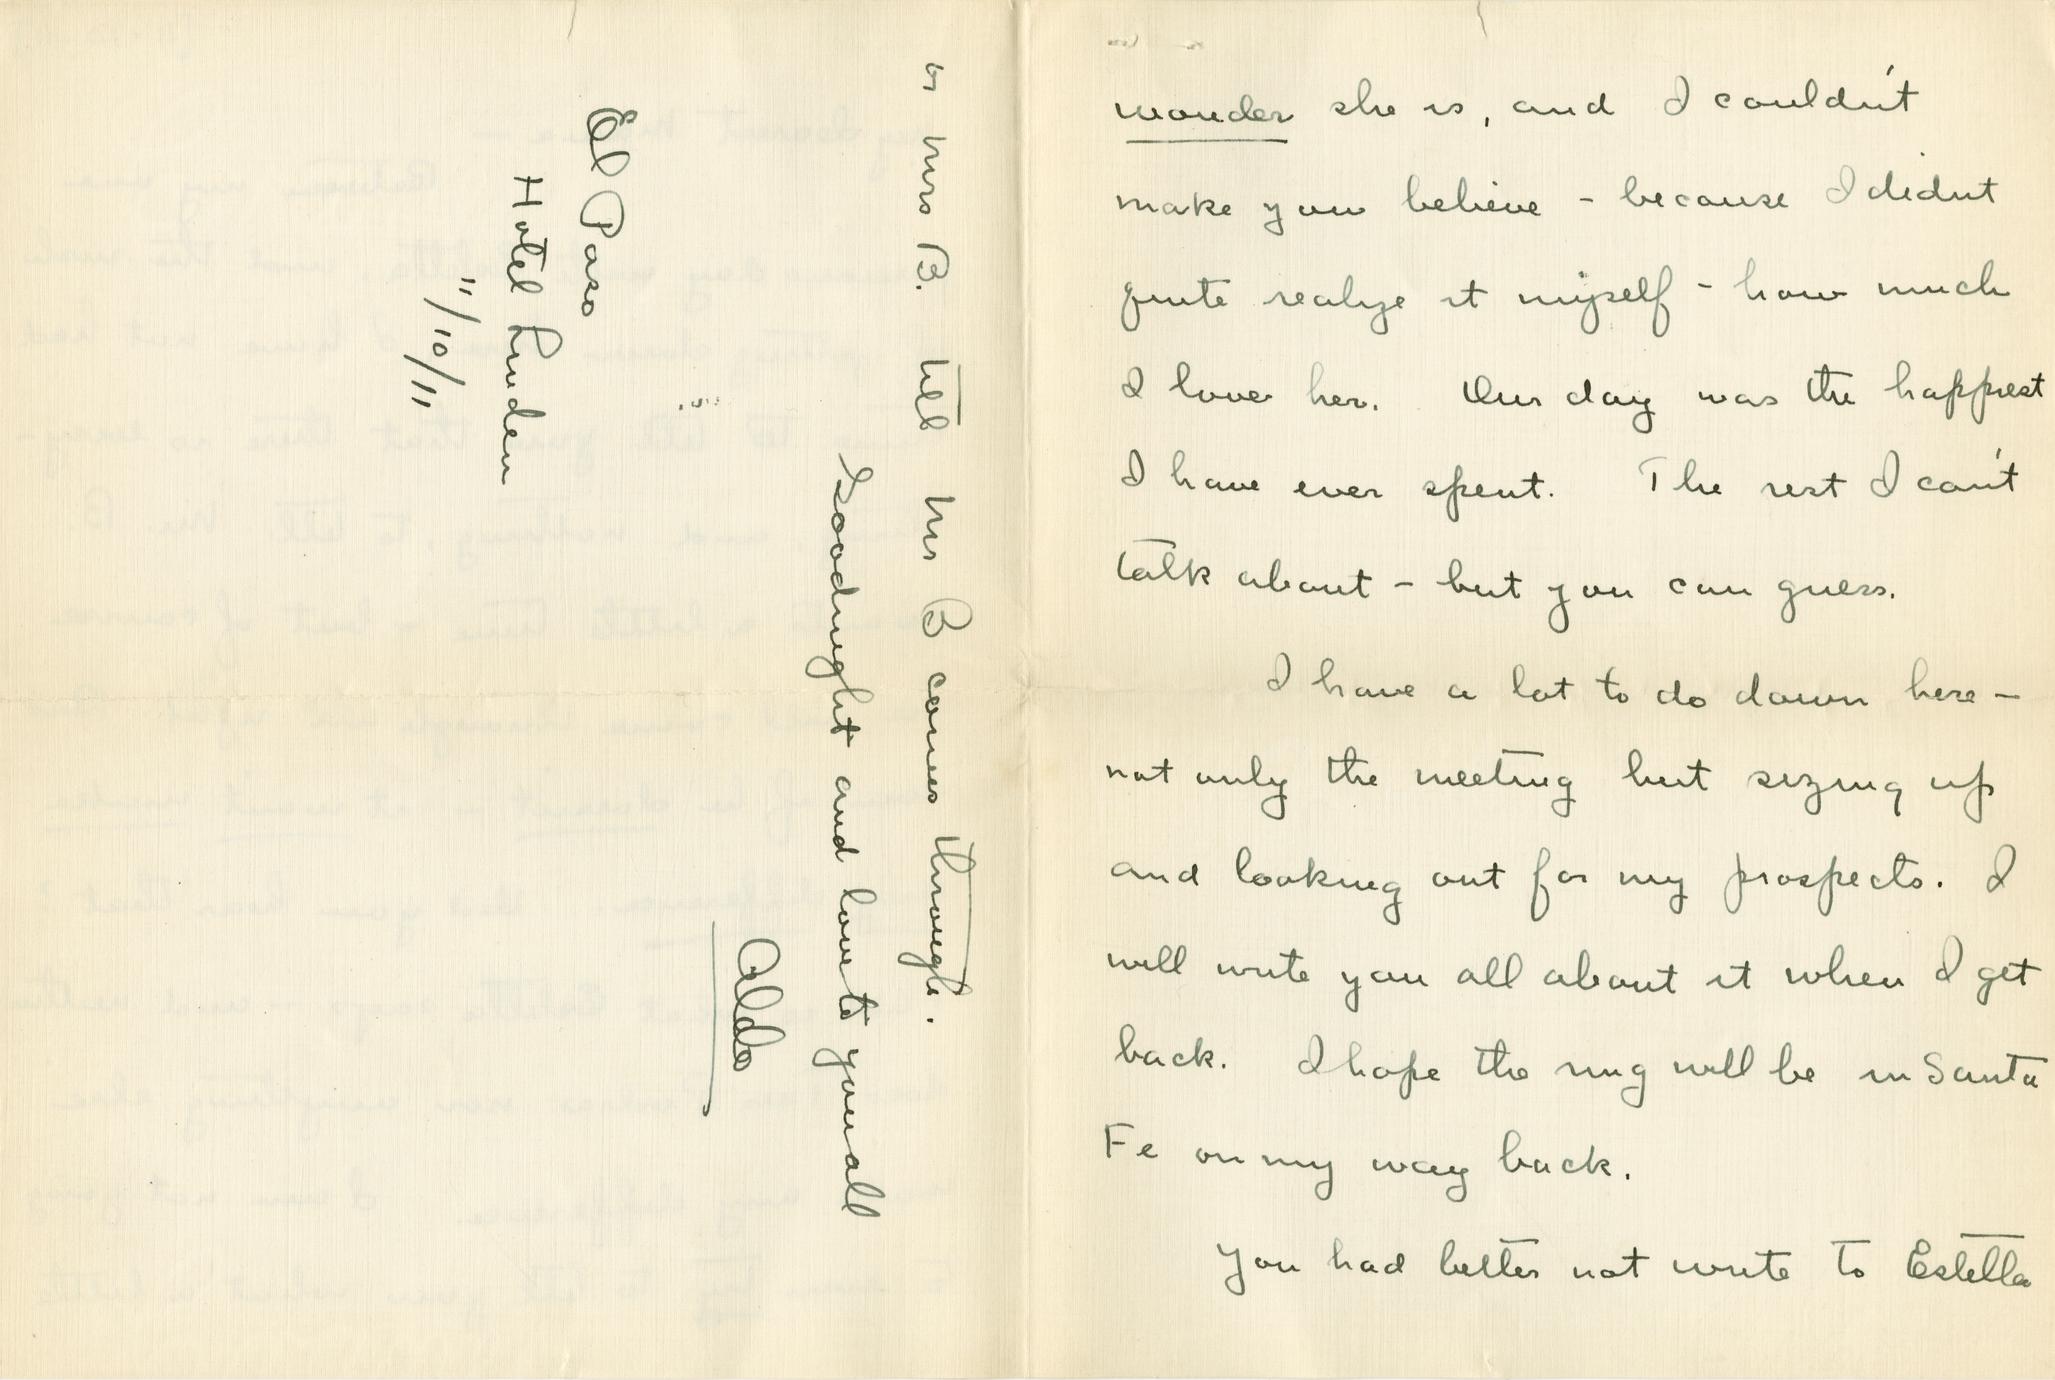 wonder she is, and I couldn't
make you believe - because I didnt
quite realize it myself - how much
I love her. Our day was the happiest
I have ever spent. The rest I can't
talk about - but you can guess.
I have a lot to do down here -
not only the meeting but sizing up
and looking out for my prospects. I
will write you all about it when I get
back. I hope the rug will be in Santa
Fe on my way back.
You had better not write to Estella
or Mrs B. till Mr B comes through.
Goodnight and love to you all
Aldo
El Paso
Hotel Linden
11/10/11